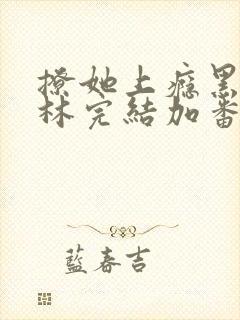 撩她上癮黑
林完結加番
藍春吉